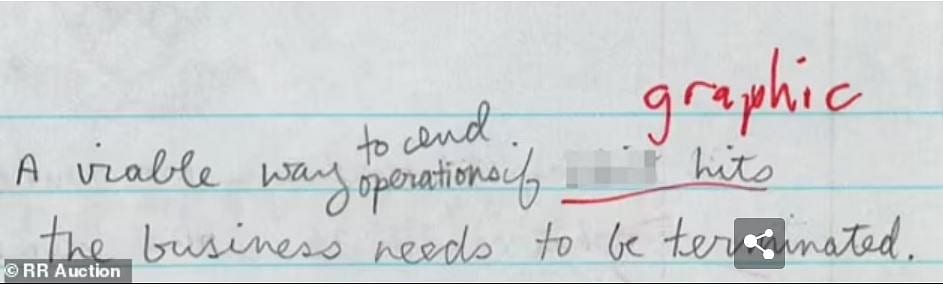 graphic
to end.
A viable way operations if hits
the business needs to be terminated.
© RR Auction